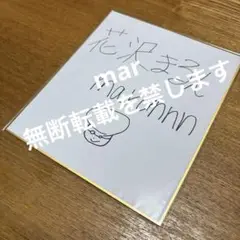 花沢まるん
mar
marunnn
無断転載を禁じます